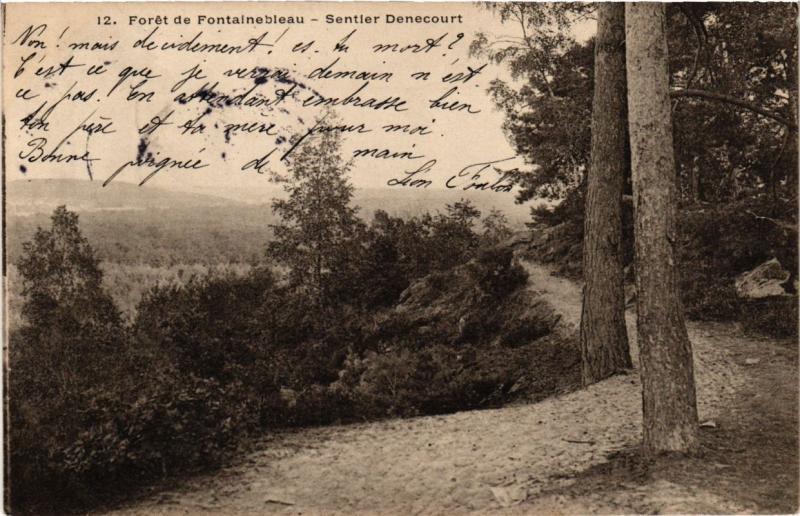 12. Forêt de Fontainebleau – Sentier Denecourt
Non! mais decidement! es-tu mort?
C'est ce que je verrai demain n'est
ce pas. En attendant embrasse bien
ton père et ta mère pour moi.
Bonne poignée de main
Léon